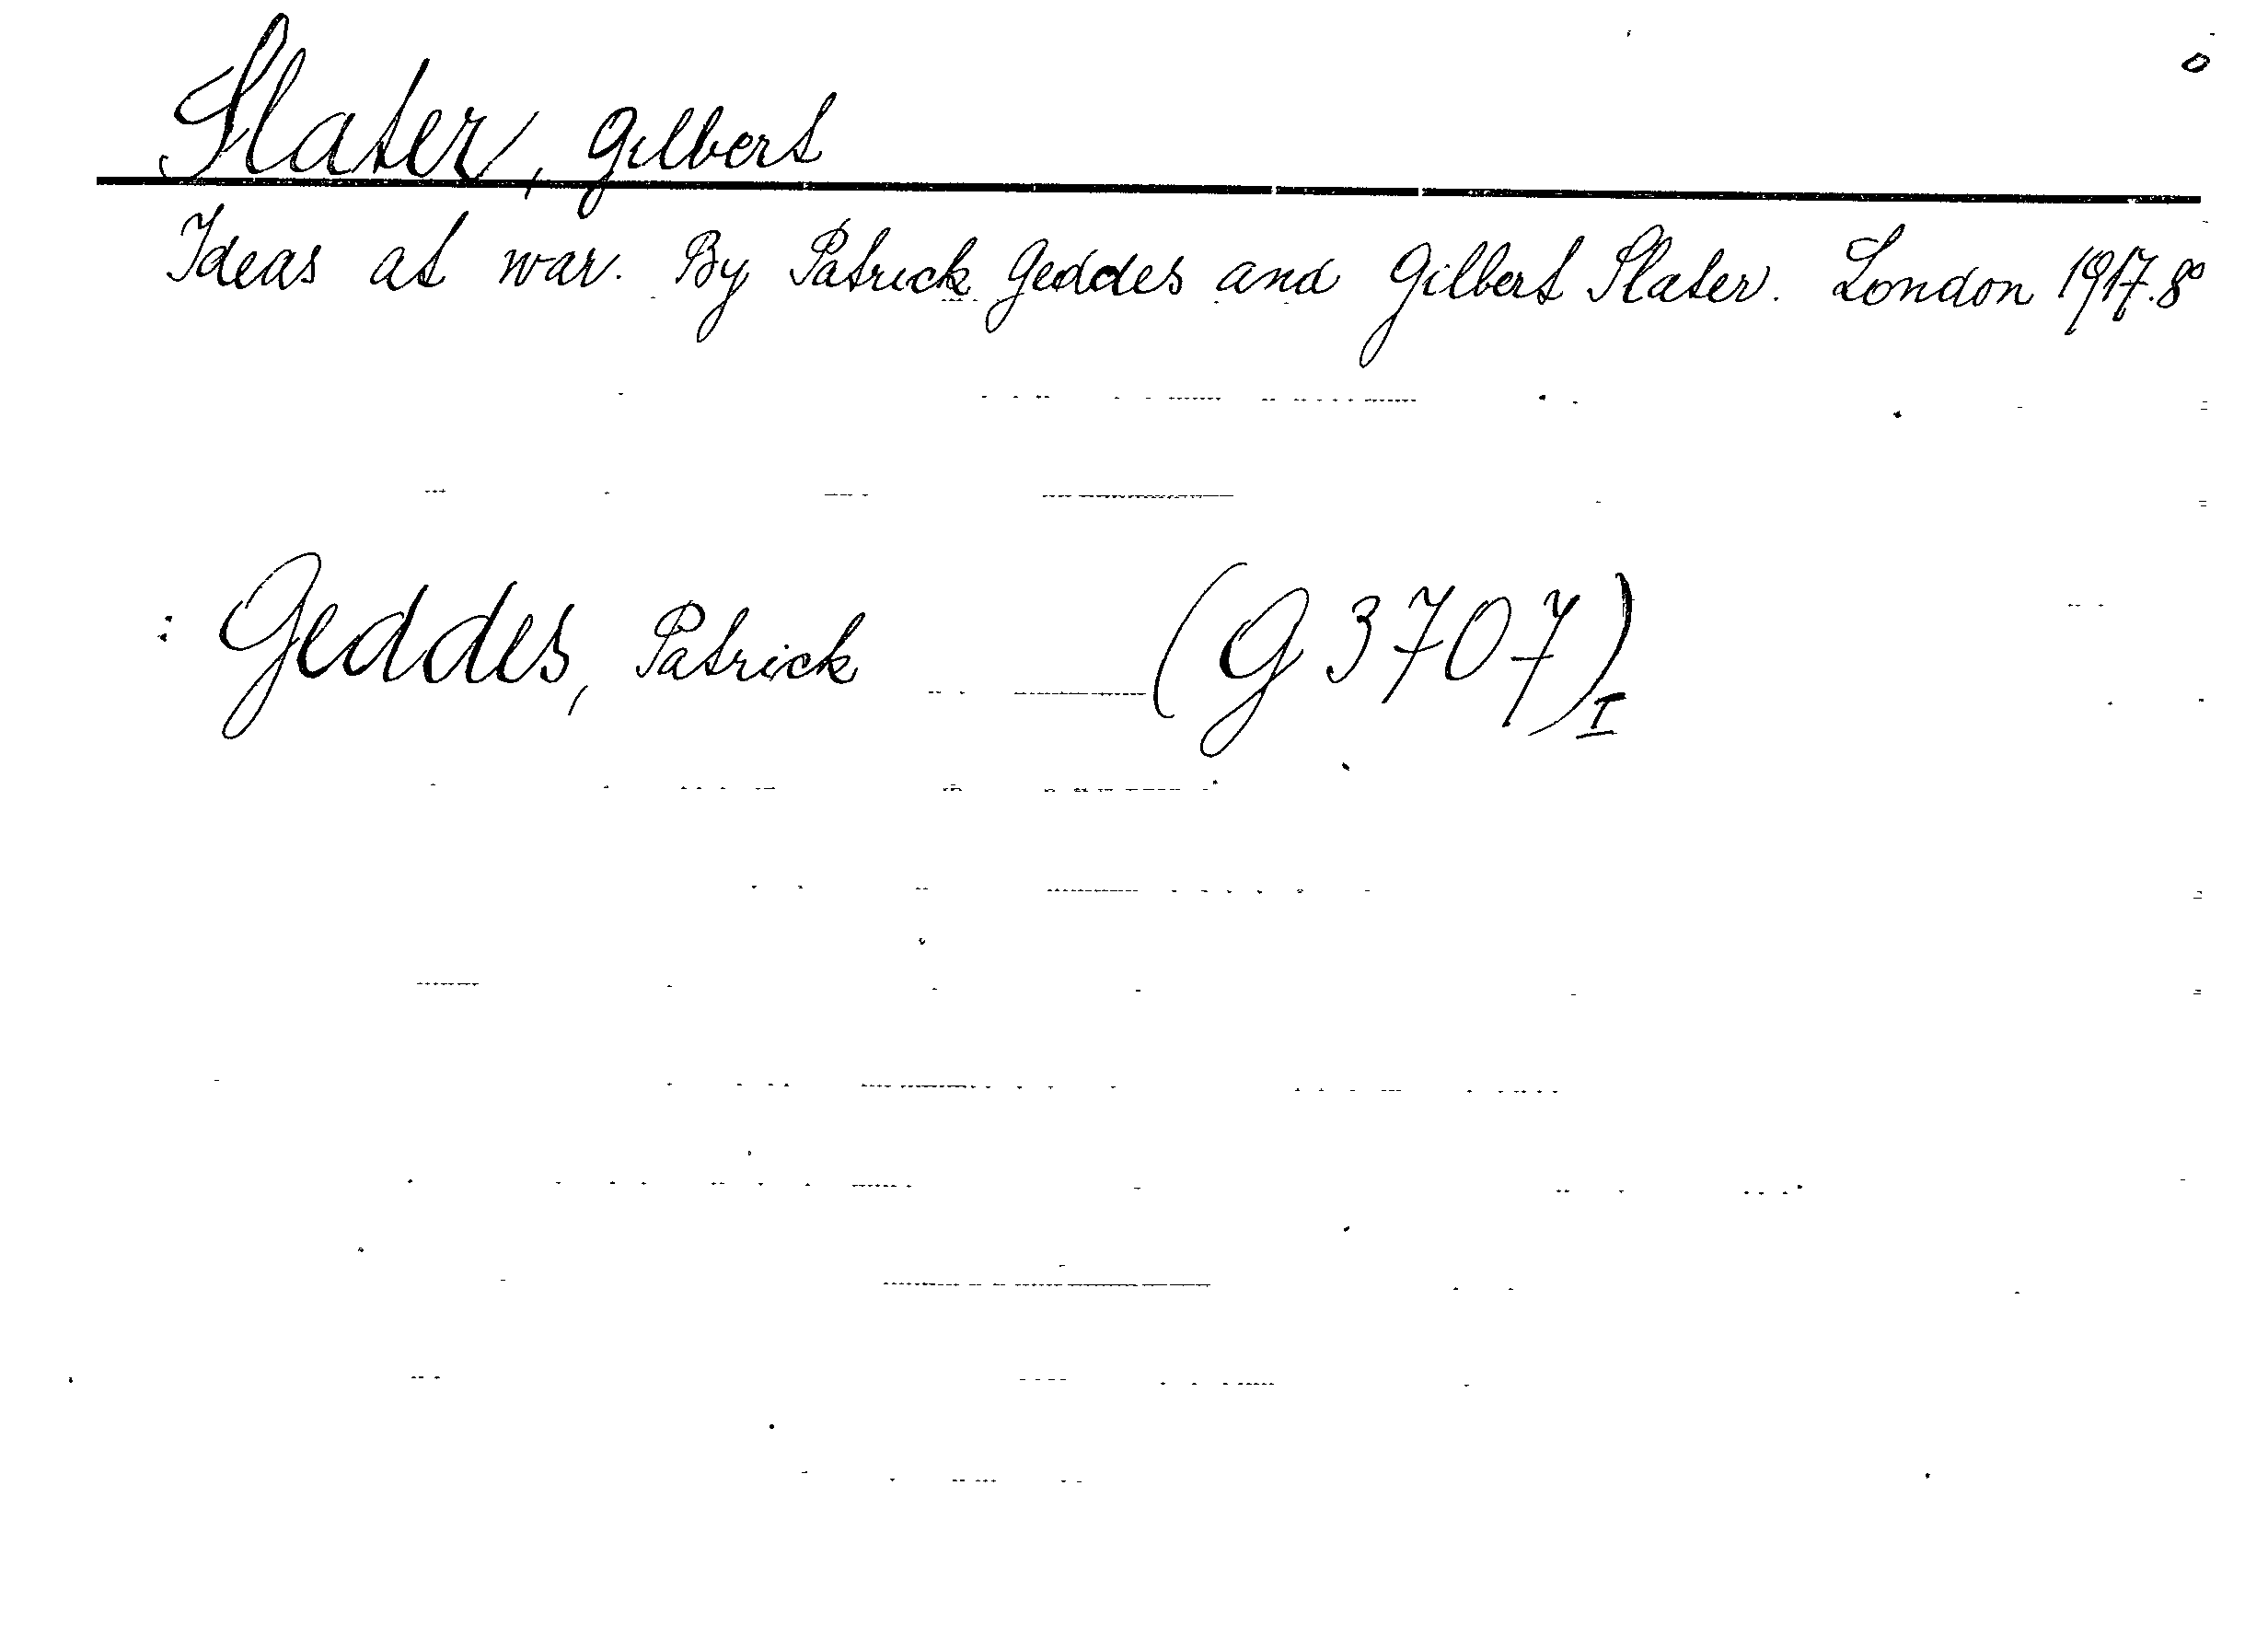 Slater, Gilbert
Ideas at war. By Patrick Geddes and Gilbert Slater. London 1917. 8°
: Geddes, Patrick (G 3707) I